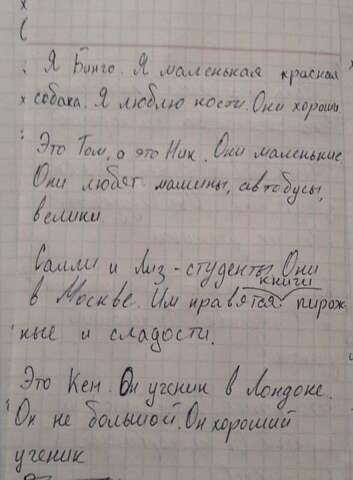 Я Бинго. Я маленькая красная
собака. Я люблю кости. Они хороши
Это Том, а это Ник. Они маленькие.
Они любят машины, автобусы,
велики.
Салли и Лиз - студенты. Они
книги
в Москве. Им нравятся пирож-
ные и сладости.
Это Кен. Он ученик в Лондоне.
Он не большой. Он хороший
ученик